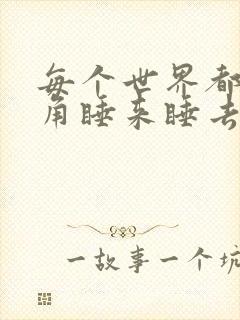 每个世界都
角睡来睡去
一故事一个坑